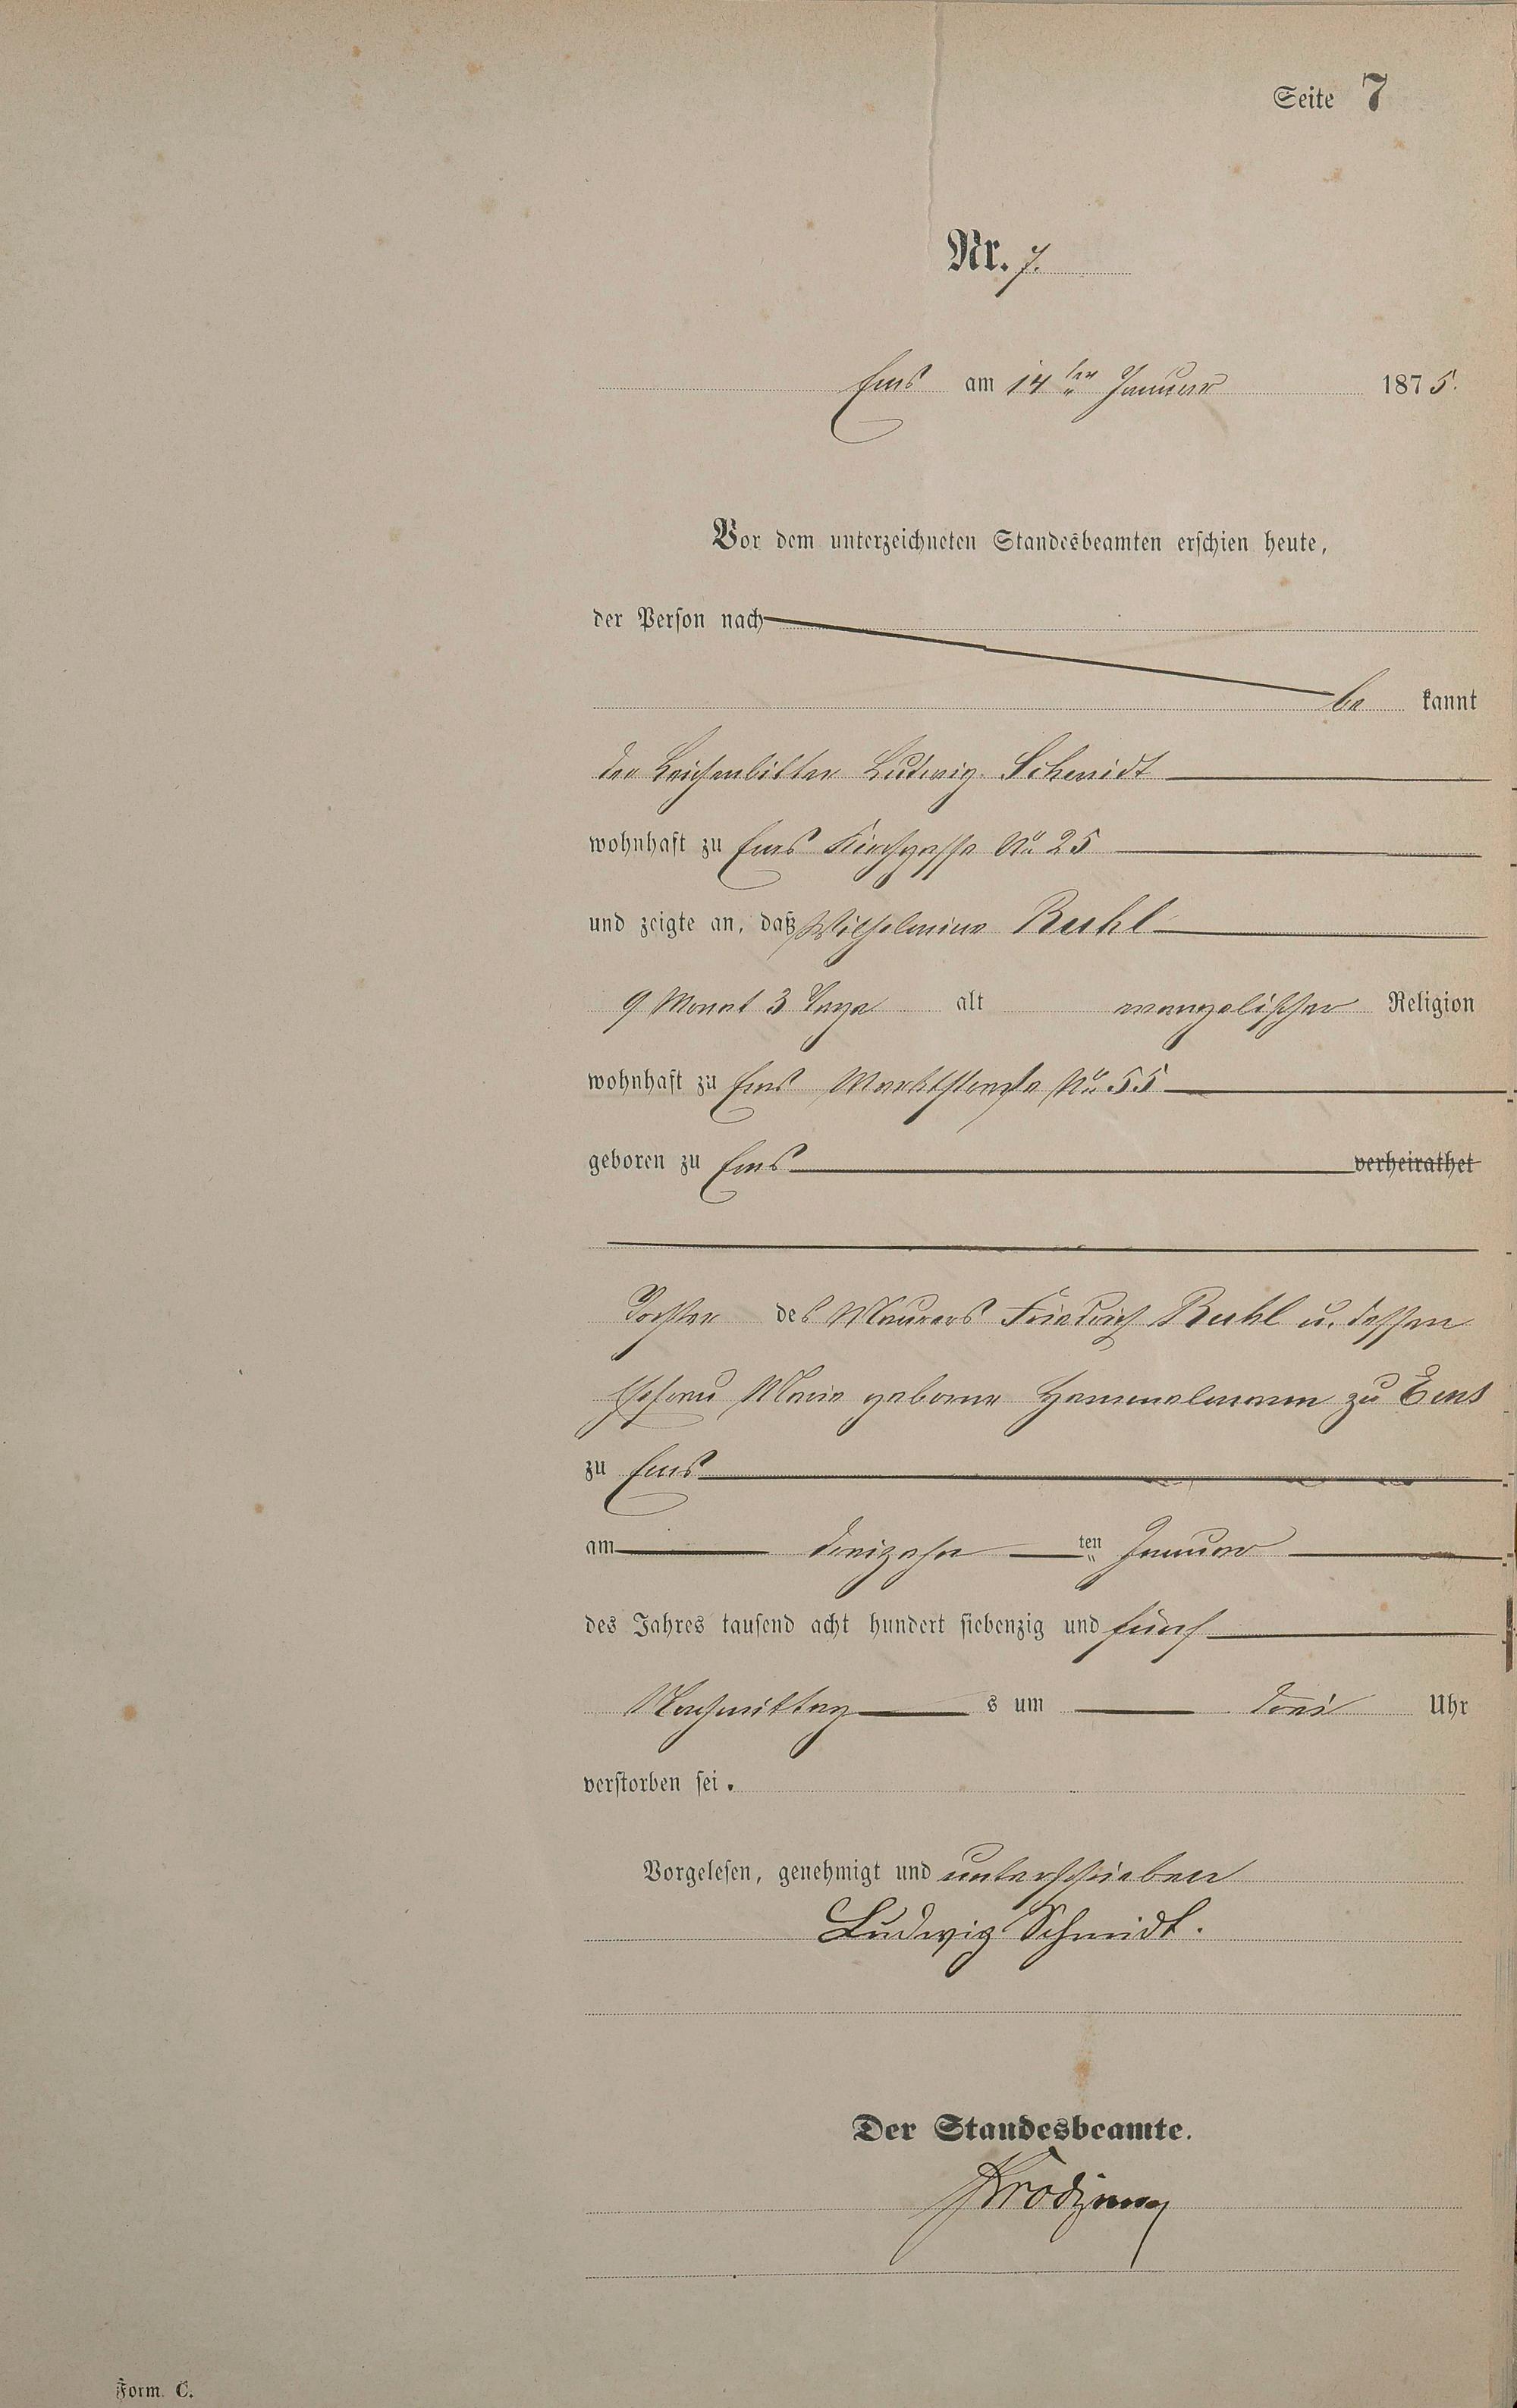 Seite 7
Nr. 7.
Ems am 14ten Januar 1875.
Vor dem unterzeichneten Standesbeamten erschien heute,
der Person nach
be kannt
der Leichenbitter Ludwig Schmidt
wohnhaft zu Ems Kirchgasse No 25
und zeigte an, daß Wilhelmine Ruhl
9 Monat 3 Tage alt evangelischer Religion
wohnhaft zu Ems Marktstraße No 55
geboren zu Ems verheirathet
Tochter des Maurers Friedrich Ruhl u. dessen
Ehefrau Marie geborne Hammelmann zu Ems
zu Ems
am dreizehn ten Januar
des Jahres tausend acht hundert siebenzig und fünf
Nachmittag s um drei Uhr
verstorben sei.
Vorgelesen, genehmigt und unterschrieben
Ludwig Schmidt.
Der Standesbeamte.
Form. C.